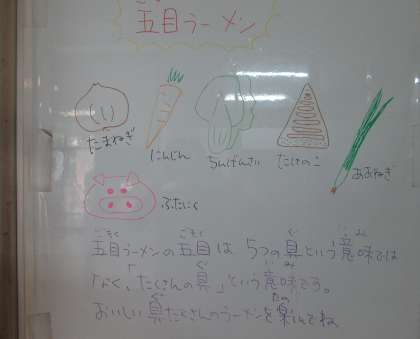 五目ラーメン
たまねぎ
にんじん
ちんげんさい
たけのこ
あおねぎ
ぶたにく
五目ラーメンの五目は 5つの具という意味では
なく、「たくさんの具」という意味です。
おいしい具たくさんのラーメンを楽しんでね